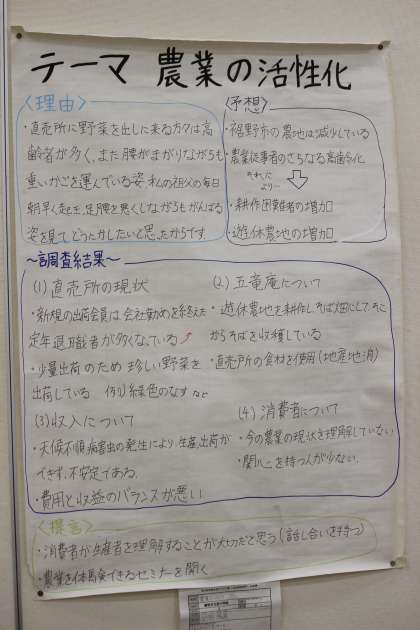 テーマ 農業の活性化
〈理由〉
・直売所に野菜を出しに来る方々は高
齢者が多く、また腰がまがりながらも
重いかごを運んでいる姿、私の祖父の毎日
朝早く起き、足腰を悪くしながらもがんばる
姿を見てどうにかしたいと思ったからです
〈予想〉
・裾野市の農地は減少している
・農業従事者のさらなる高齢化
それに
より…
・耕作困難者の増加
・遊休農地の増加
〜調査結果〜
(1) 直売所の現状
・新規の出荷会員は、会社勤めを終えた
定年退職者が多くなっている
・少量出荷のため 珍しい野菜を
出荷している 例)緑色のなす など
(2) 五竜庵について
・遊休農地を耕作しそば畑にして、そこ
からそばを収穫している
・直売所の食材を使用(地産地消)
(3)収入について
・天候不順、病害虫の発生により 生産、出荷が
できず、不安定である。
・費用と収益のバランスが悪い
(4) 消費者について
・今の農業の現状を理解していない
・関心を持つ人が少ない。
〈提言〉
・消費者が生産者を理解することが大切だと思う(話し合いを持つ)
・農業を体験できるセミナーを開く